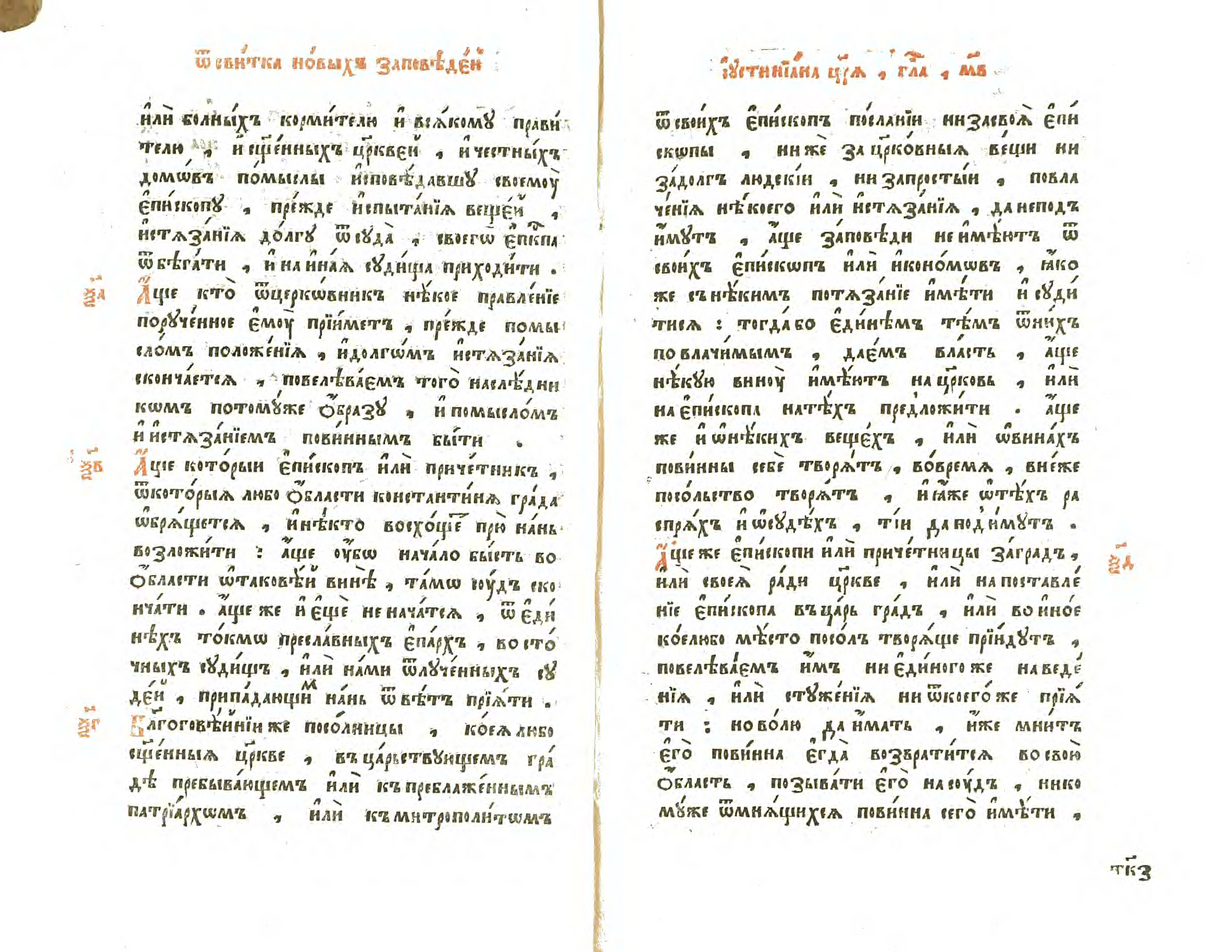 Ѿ свитка но́выхъ за́повѣде́й
и҆лѝ бо́лны́хъ корми́телю и҆ всѧ́кому прави́
телю , и҆ сщ҃е́нныхъ цр҃кве́й , и҆ че́стны́хъ
домѡ́въ по́мыслы и҆сповѣ́давшу своемоу̀
є҆пи́скопу , пре́жде и҆спыта́нїѧ веще́й ,
и҆стѧза́нїѧ до́лгу ѿ суда̀ , своегѡ̀ є҆пкⷭ҇па
ѿбѣга́ти , и҆ на и҆на́ѧ суди́ща приходи́ти .
А҆́ще кто̀ ѿ церко́вникъ нѣ́кое правле́нїе
пору́че́нное є҆моу̀ прїи́метъ , пре́жде помы
сло́мъ положе́нїѧ , и҆ долго́мъ и҆стѧза́нїѧ
сконча́етсѧ , повелѣва́емъ того̀ наслѣ́дни
кѡмъ потому́же ѻ҆́бразу , и҆ помысло́мъ
и҆ и҆стѧза́нїемъ пови́ннымъ бы́ти .
А҆́ще кото́рыи є҆пи́скопъ и҆лѝ приче́тникъ ,
ѿ кото́рыѧ любо ѻ҆́бласти константи́нѧ гра́да
ѡ҆брѧ́щетсѧ , и҆ нѣ́кто восхо́щеⷮ прю̀ на́нь
возложи́ти : а҆́ще оу҆́бѡ нача́ло бы́сть во
ѻ҆́бласти ѡ҆ таковѣ́й винѣ̀ , та́мѡ соу́дъ ско
нча́ти . а҆́ще же и҆ є҆щѐ не нача́тсѧ , ѿ є҆ди́
нѣхъ то́кмѡ пресла́вныхъ є҆па́рхъ , восто́
чныхъ суди́щъ , и҆лѝ на́ми ѿлуче́нныхъ су
де́й , припа́дающиⷨ на́нь ѿвѣ́тъ прїѧ́ти .
Бл҃гоговѣ́йнїи же посо́лницы , ко́еѧ любо
сщ҃е́нныѧ цр҃кве , въ ца́рьствующемъ гра́
дѣ пребыва́ющемъ и҆лѝ къ пребл҃же́ннымъ
патрїа́рхѡмъ , и҆лѝ къ митрополи́тѡмъ
І҆устинїа́на цр҃ѧ̀ , гла҃ , м҃в
ѿ свои́хъ є҆пи́скопъ по́сланїи ни за своѧ̀ є҆пи́
скѡпы , ни же за цр҃ко́вныѧ ве́щи ни
за́долгъ людскі́и , ни за просты́и , повла
че́нїѧ нѣ́коего и҆лѝ и҆стѧза́нїѧ , да не под̾
и҆́мутъ , а҆́ще за́повѣди не и҆мѣ́ютъ ѿ
свои́хъ є҆пи́скѡпъ и҆лѝ и҆коно́мѡвъ , ꙗ҆́ко
же съ нѣ́кимъ потѧза́нїе и҆мѣ́ти и҆ суди́
тисѧ : тогда́ бо є҆ди́нѣмъ тѣ́мъ ѿ ни́хъ
повлачи́мымъ , дае́мъ вла́сть , а҆́ще
нѣ́кую виноу̀ и҆мѣ́ютъ на цр҃ковь , и҆лѝ
на є҆пи́скопа на тѣ́хъ предложи́ти . а҆́ще
же и҆ ѡ҆ нѣ́кихъ веще́хъ , и҆лѝ ѡ҆ вина́хъ
пови́нны себѐ творѧ́тъ , во́ времѧ , вне́же
посо́льство творѧ́тъ , и҆ ꙗ҆́же ѡ҆ тѣ́хъ ра
спрѧ́хъ и҆ ѡ҆ судѣ́хъ , ті́и да под̾и́мутъ .
А҆́ще же є҆пи́скопи и҆лѝ приче́тницы за́ градъ ,
и҆лѝ своеѧ̀ ра́ди цр҃кве , и҆лѝ на поставле́
нїе є҆пи́скопа въ ца́рь гра́дъ , и҆лѝ во и҆но́е
ко́елибо мѣ́сто посо́лъ творѧ́ще прїи́дутъ ,
повелѣва́емъ и҆̀мъ ни є҆ди́ного же наведе́
нїѧ , и҆лѝ стуже́нїѧ ни ѿ коего́ же прїѧ́
ти : но во́лю да и҆́мать , и҆́же мни́тъ
є҆го̀ пови́нна є҆гда̀ возврати́тсѧ во свою̀
ѻ҆́бласть , позыва́ти є҆го̀ на соу́дъ , нико
му́же ѿ мнѧ́щихсѧ пови́нна сего̀ и҆мѣ́ти ,
тк҃з